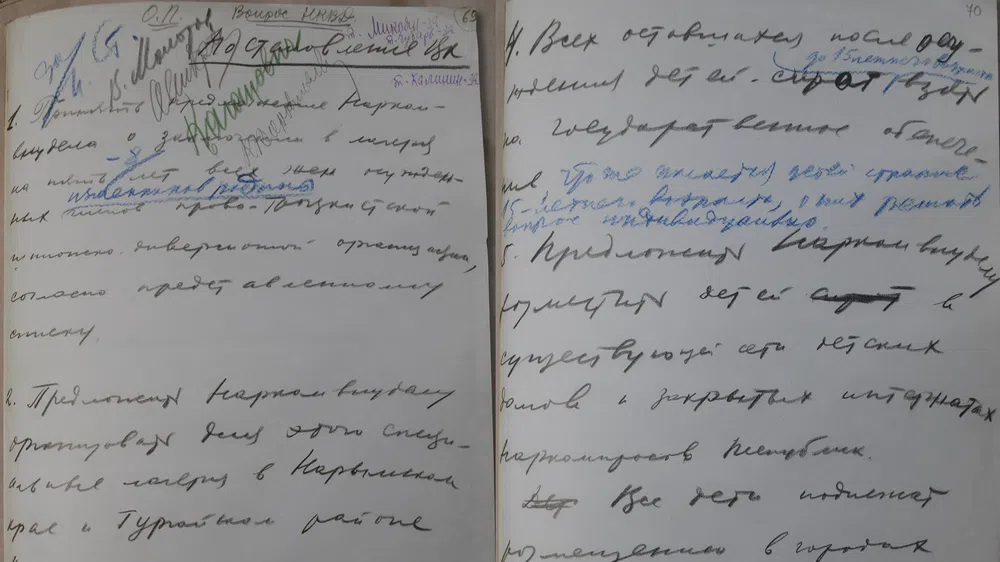 О.П. Вопрос НКВД
69
За
И. Ст.
В. Молотов
т. Микоян - за
т. Чубарь - за
Постановление ЦК
Каганович
т. Калинин - за
1. Принять предложение Нарком-
внудела о заключении в лагеря
на пять - 8 лет всех жен осужден-
ных изменников родины право-троцкистской
шпионско-диверсионной организации,
согласно представленному
списку.
2. Предложить Наркомвнуделу
организовать для этого специ-
альные лагеря в Нарымском
крае и Тургайском районе
70
4. Всех оставшихся после осу-
до 15-летнего возраста
ждения детей-сирот взять
на государственное обеспече-
ние, что же касается детей старше
15-летнего возраста, о них решать
вопрос индивидуально.
5. Предложить Наркомвнуделу
разместить детей сирот в
существующей сети детских
домов и закрытых интернатах
наркомпросов Республик.
Все дети подлежат
размещению в городах